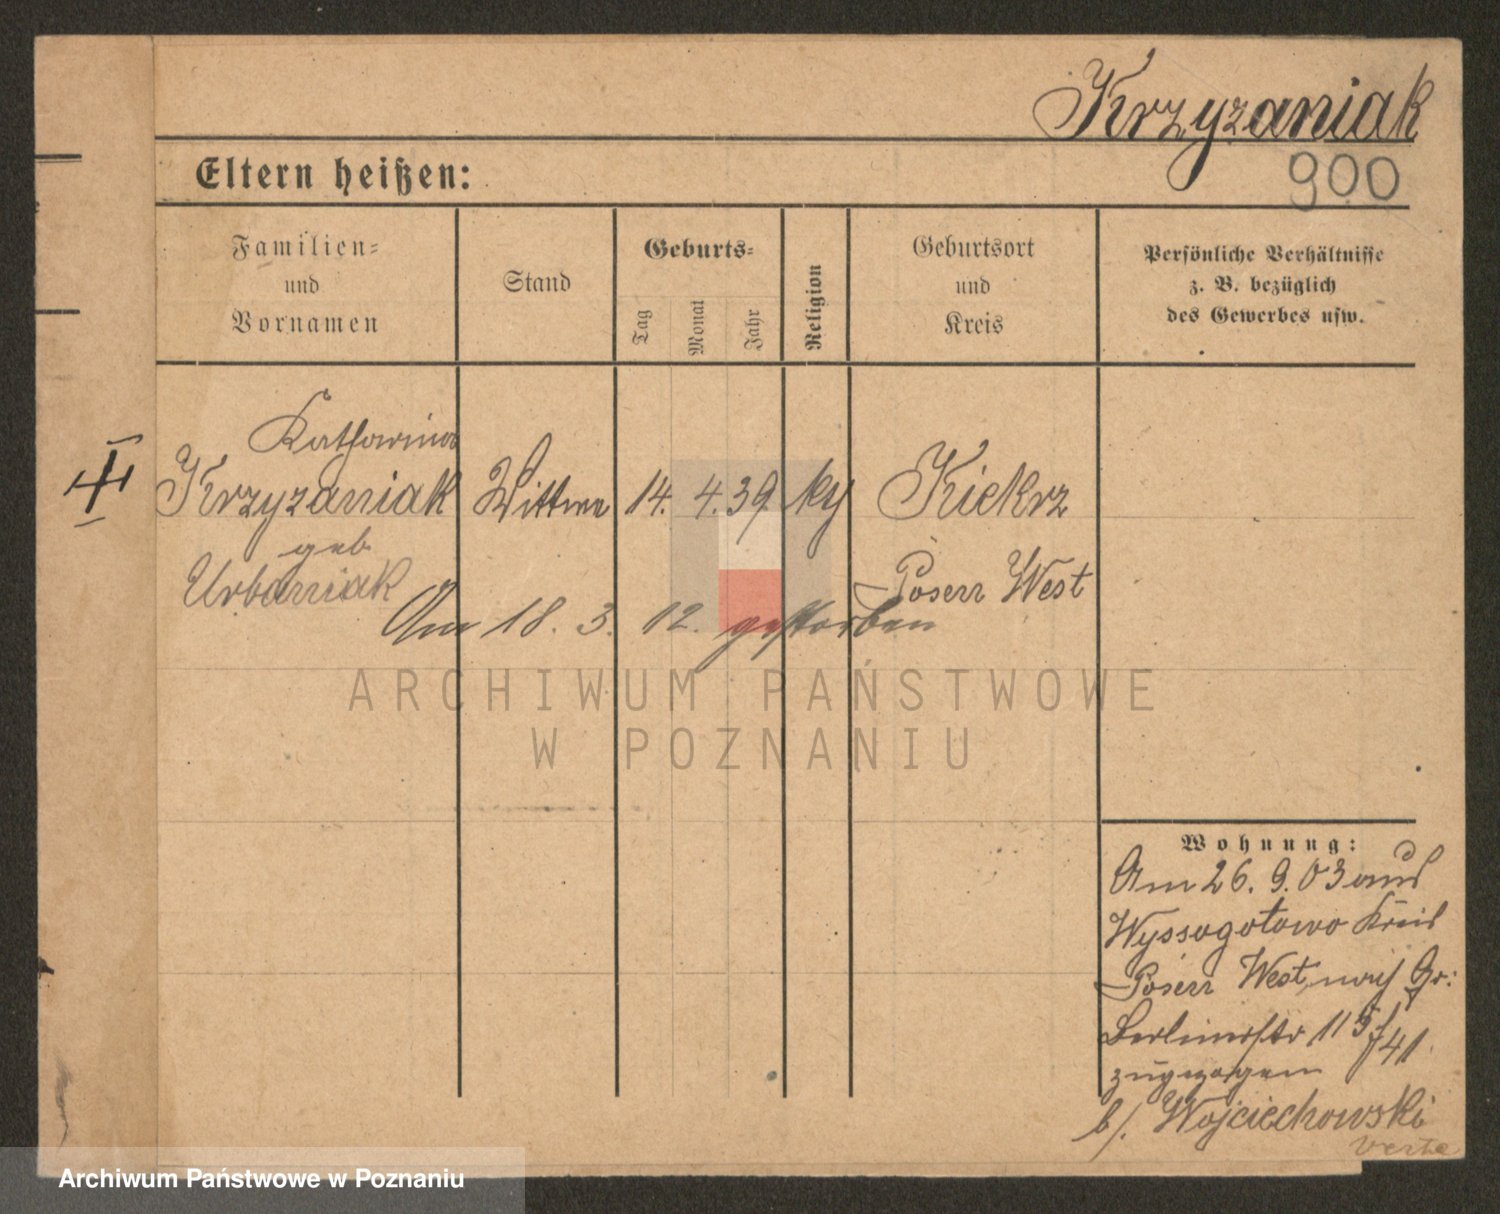 Krzyzaniak
Eltern heißen:
900
Familien-
und
Vornamen
Stand
Geburts-
Tag
Monat
Jahr
Religion
Geburtsort
und
Kreis
Persönliche Verhältnisse
z. B. bezüglich
des Gewerbes usw.
Katharina
Krzyzaniak Wittwe 14. 4. 39. kg Kiekrz
geb
Urbaniak
Posen West
Am 18. 3. 12. gestorben
ARCHIWUM PAŃSTWOWE
W POZNANIU
Wohnung:
Am 26. 9. 03 aus
Wyssogotowo Kreis
Posen West, nach Gr:
Berlinerstr 115/41
zugezogen
b/. Wojciechowski
verte
Archiwum Państwowe w Poznaniu